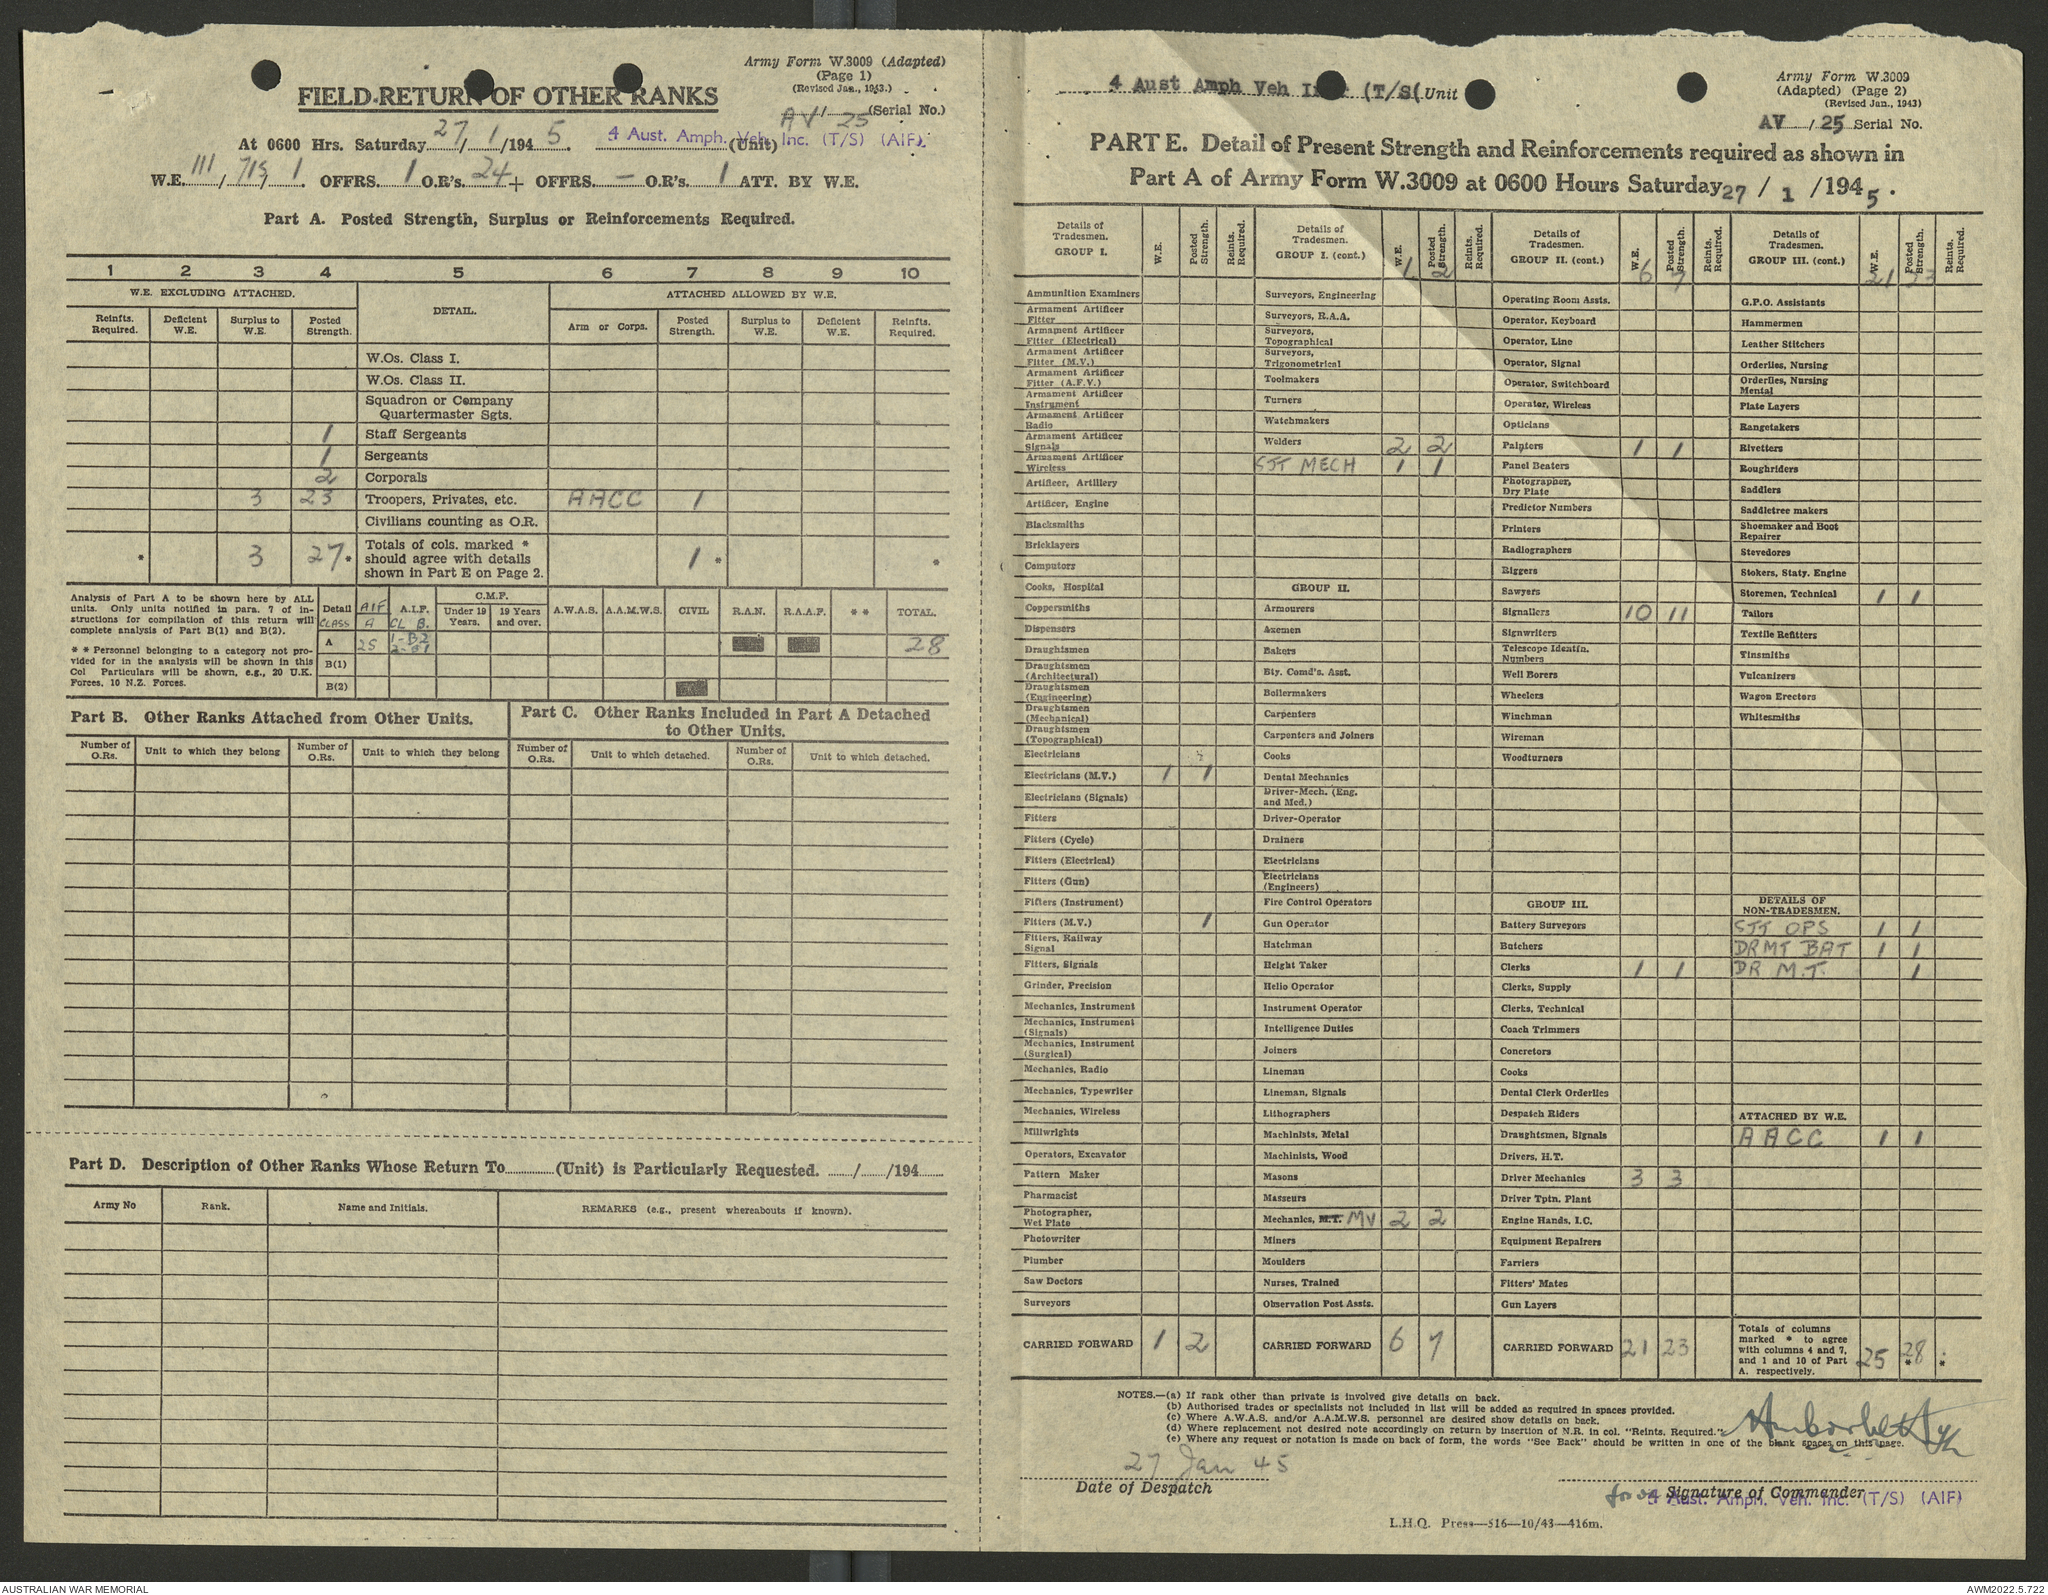 Army Form W.3009 (Adapted)
(Page 1)
(Revised Jan., 1943.)
FIELD RETURN OF OTHER RANKS
AV / 25 (Serial No.)
At 0600 Hrs. Saturday 27/1/1945. 4 Aust. Amph. Veh. Inc. (T/S) (AIF). (Unit)
W.E. III / 715 / 1 OFFRS. 1 O.R's. 24 + OFFRS. — O.R's. 1 ATT. BY W.E.
Part A. Posted Strength, Surplus or Reinforcements Required.
1 2 3 4 5 6 7 8 9 10
W.E. EXCLUDING ATTACHED. DETAIL. ATTACHED ALLOWED BY W.E.
Reinfts. Required. Deficient W.E. Surplus to W.E. Posted Strength. Arm or Corps. Posted Strength. Surplus to W.E. Deficient W.E. Reinfts. Required.
W.Os. Class I.
W.Os. Class II.
Squadron or Company
Quartermaster Sgts.
1 Staff Sergeants
1 Sergeants
2 Corporals
3 23 Troopers, Privates, etc. AACC 1
Civilians counting as O.R.
* 3 27* Totals of cols. marked * should agree with details shown in Part E on Page 2. 1 * *
Analysis of Part A to be shown here by ALL
units. Only units notified in para. 7 of in-
structions for compilation of this return will
complete analysis of Part B(1) and B(2).
* * Personnel belonging to a category not pro-
vided for in the analysis will be shown in this
Col Particulars will be shown, e.g., 20 U.K.
Forces, 10 N.Z. Forces.
Detail CLASS AIF A A.I.F. CL B. C.M.F. Under 19 Years. 19 Years and over. A.W.A.S. A.A.M.W.S. CIVIL R.A.N. R.A.A.F. * * TOTAL.
A 25 1-B2 2-B1 28
B(1)
B(2)
Part B. Other Ranks Attached from Other Units.
Number of O.Rs. Unit to which they belong Number of O.Rs. Unit to which they belong
Part C. Other Ranks Included in Part A Detached
to Other Units.
Number of O.Rs. Unit to which detached. Number of O.Rs. Unit to which detached.
Part D. Description of Other Ranks Whose Return To (Unit) is Particularly Requested. / /194
Army No Rank. Name and Initials. REMARKS (e.g., present whereabouts if known).
4 Aust Amph Veh (T/S( Unit
Army Form W.3009
(Adapted) (Page 2)
(Revised Jan., 1943)
AV / 25 Serial No.
PART E. Detail of Present Strength and Reinforcements required as shown in
Part A of Army Form W.3009 at 0600 Hours Saturday 27 / 1 /1945.
Details of Tradesmen. GROUP I. W.E. Posted Strength. Reints. Required.
Ammunition Examiners
Armament Artificer Fitter
Armament Artificer Fitter (Electrical)
Armament Artificer Fitter (M.V.)
Armament Artificer Fitter (A.F.V.)
Armament Artificer Instrument
Armament Artificer Radio
Armament Artificer Signals
Armament Artificer Wireless
Artificer, Artillery
Artificer, Engine
Blacksmiths
Bricklayers
Computors
Cooks, Hospital
Coppersmiths
Dispensers
Draughtsmen
Draughtsmen (Architectural)
Draughtsmen (Engineering)
Draughtsmen (Mechanical)
Draughtsmen (Topographical)
Electricians
Electricians (M.V.) 1 1
Electricians (Signals)
Fitters
Fitters (Cycle)
Fitters (Electrical)
Fitters (Gun)
Fitters (Instrument)
Fitters (M.V.) 1
Fitters, Railway Signal
Fitters, Signals
Grinder, Precision
Mechanics, Instrument
Mechanics, Instrument (Signals)
Mechanics, Instrument (Surgical)
Mechanics, Radio
Mechanics, Typewriter
Mechanics, Wireless
Millwrights
Operators, Excavator
Pattern Maker
Pharmacist
Photographer, Wet Plate
Photowriter
Plumber
Saw Doctors
Surveyors
CARRIED FORWARD 1 2
Details of Tradesmen. GROUP I. (cont.) W.E. Posted Strength. Reints. Required.
1 2
Surveyors, Engineering
Surveyors, R.A.A.
Surveyors, Topographical
Surveyors, Trigonometrical
Toolmakers
Turners
Watchmakers
Welders 2 2
SJT MECH 1 1
GROUP II.
Armourers
Axemen
Bakers
Bty. Comd's. Asst.
Boilermakers
Carpenters
Carpenters and Joiners
Cooks
Dental Mechanics
Driver-Mech. (Eng. and Med.)
Driver-Operator
Drainers
Electricians
Electricians (Engineers)
Fire Control Operators
Gun Operator
Hatchman
Height Taker
Helio Operator
Instrument Operator
Intelligence Duties
Joiners
Lineman
Lineman, Signals
Lithographers
Machinists, Metal
Machinists, Wood
Masons
Masseurs
Mechanics, M.T. MV 2 2
Miners
Moulders
Nurses, Trained
Observation Post Assts.
CARRIED FORWARD 6 7
Details of Tradesmen. GROUP II. (cont.) W.E. Posted Strength. Reints. Required.
6 7
Operating Room Assts.
Operator, Keyboard
Operator, Line
Operator, Signal
Operator, Switchboard
Operator, Wireless
Opticians
Painters 1 1
Panel Beaters
Photographer, Dry Plate
Predictor Numbers
Printers
Radiographers
Riggers
Sawyers
Signallers 10 11
Signwriters
Telescope Identfn. Numbers
Well Borers
Wheelers
Winchman
Wireman
Woodturners
GROUP III.
Battery Surveyors
Butchers
Clerks 1 1
Clerks, Supply
Clerks, Technical
Coach Trimmers
Concretors
Cooks
Dental Clerk Orderlies
Despatch Riders
Draughtsmen, Signals
Drivers, H.T.
Driver Mechanics 3 3
Driver Tptn. Plant
Engine Hands, I.C.
Equipment Repairers
Farriers
Fitters' Mates
Gun Layers
CARRIED FORWARD 21 23
Details of Tradesmen. GROUP III. (cont.) W.E. Posted Strength. Reints. Required.
21 23
G.P.O. Assistants
Hammermen
Leather Stitchers
Orderlies, Nursing
Orderlies, Nursing Mental
Plate Layers
Rangetakers
Rivetters
Roughriders
Saddlers
Saddletree makers
Shoemaker and Boot Repairer
Stevedores
Stokers, Staty. Engine
Storemen, Technical 1 1
Tailors
Textile Refitters
Tinsmiths
Vulcanizers
Wagon Erectors
Whitesmiths
DETAILS OF NON-TRADESMEN.
SJT OPS 1 1
DRMT BAT 1 1
DR M.T. 1
ATTACHED BY W.E.
AACC 1 1
Totals of columns marked * to agree with columns 4 and 7, and 1 and 10 of Part A. respectively. 25 28 * *
NOTES.—(a) If rank other than private is involved give details on back.
(b) Authorised trades or specialists not included in list will be added as required in spaces provided.
(c) Where A.W.A.S. and/or A.A.M.W.S. personnel are desired show details on back.
(d) Where replacement not desired note accordingly on return by insertion of N.R. in col. "Reints. Required."
(e) Where any request or notation is made on back of form, the words "See Back" should be written in one of the blank spaces on this page.
27 Jan 45
Date of Despatch
for Signature of Commander
4 Aust. Amph. Veh. Inc. (T/S) (AIF)
L.H.Q. Press—516—10/43—416m.
AUSTRALIAN WAR MEMORIAL
AWM2022.5.722